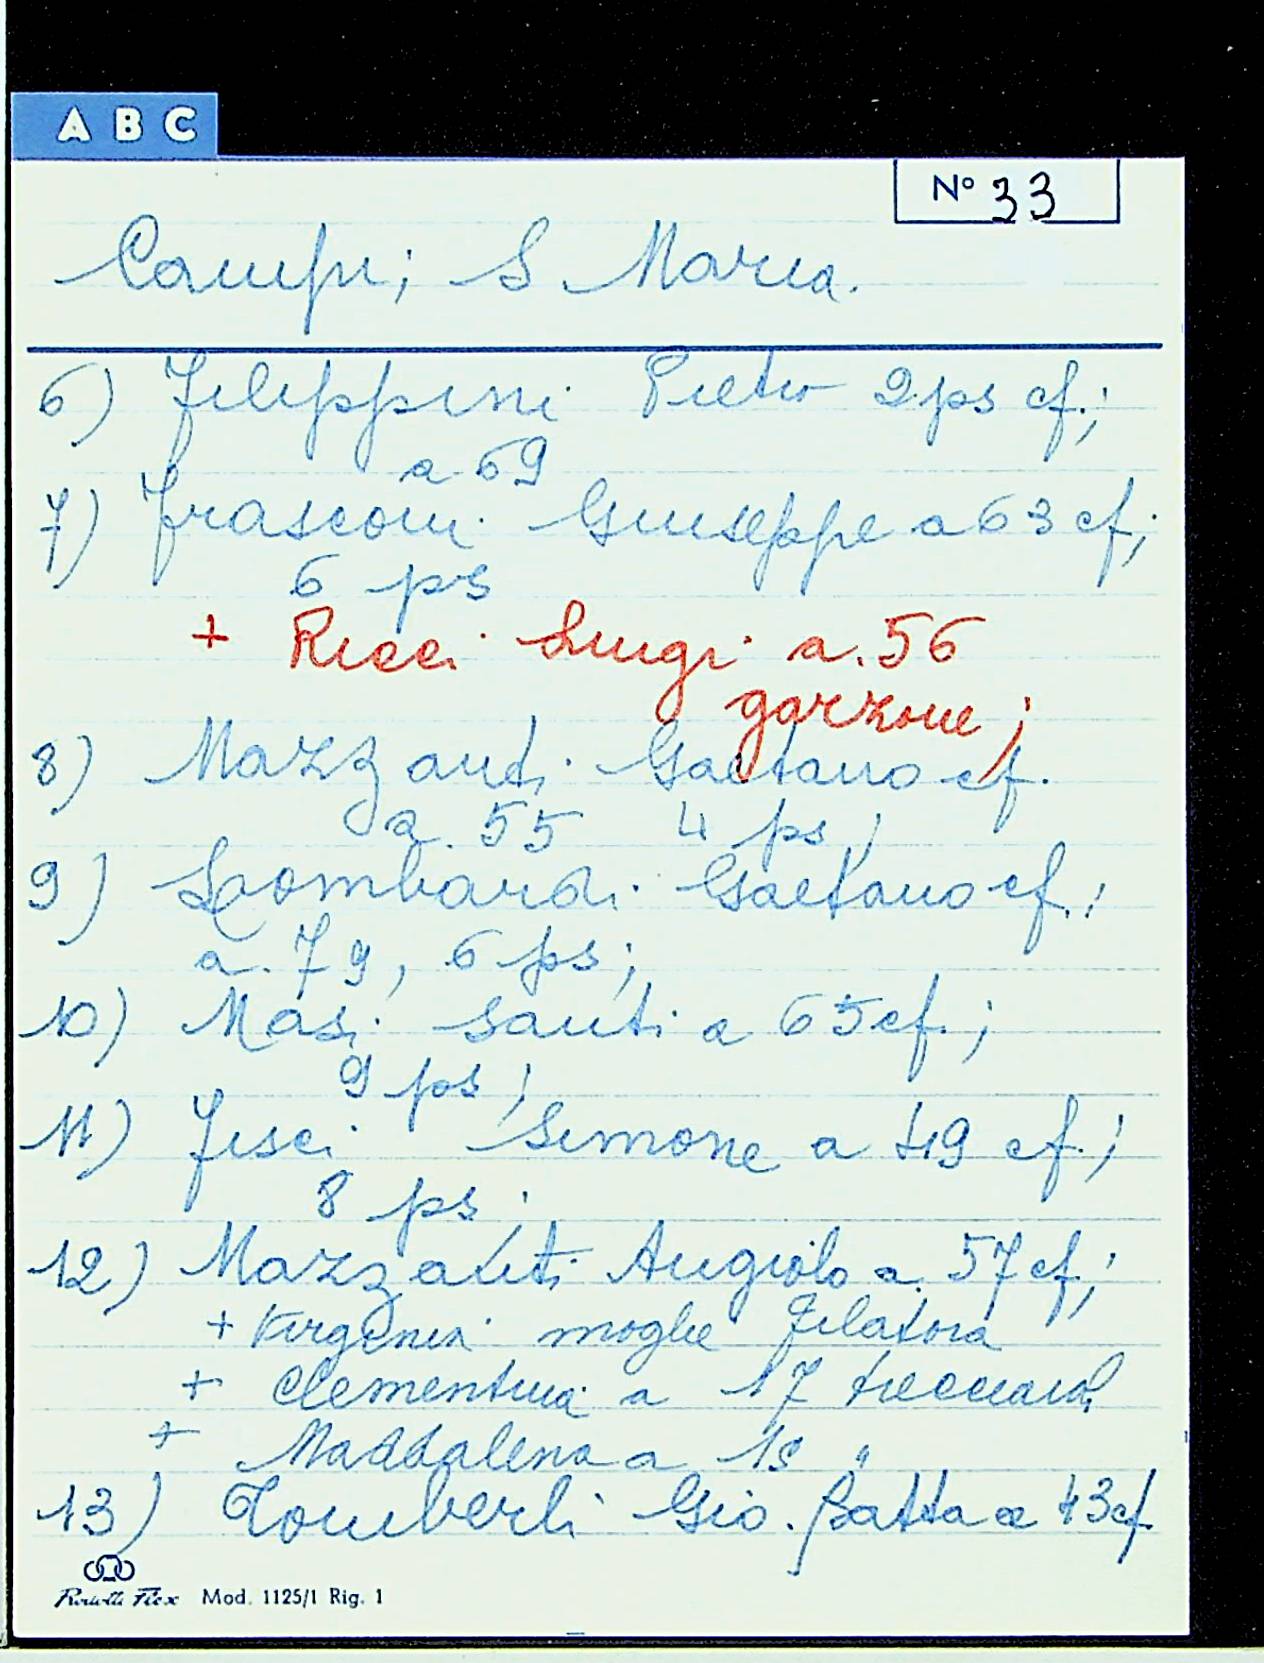 A B C
N° 33
Campi; S Maria.
6) Filippini Pietro 2 ps cf.;
a 69
7) Frasconi Giuseppe a 63 cf;
6 ps
+ Ricci Luigi a. 56
garzone;
8) Mazzanti Gaetano cf.
a. 55 4 ps;
9) Lombardi Gaetano cf.;
a. 79, 6 ps;
10) Masi Santi a 65 cf.;
9 ps;
11) Fisci Simone a 49 cf.;
8 ps;
12) Mazzanti Angiolo a. 57 cf;
+ Virginia moglie filatora
+ Clementina a 17 trecciaiol
+ Maddalena a "
13) Tomberli Gio. Batta a 43 cf.
Flex Mod. 1125/1 Rig. 1